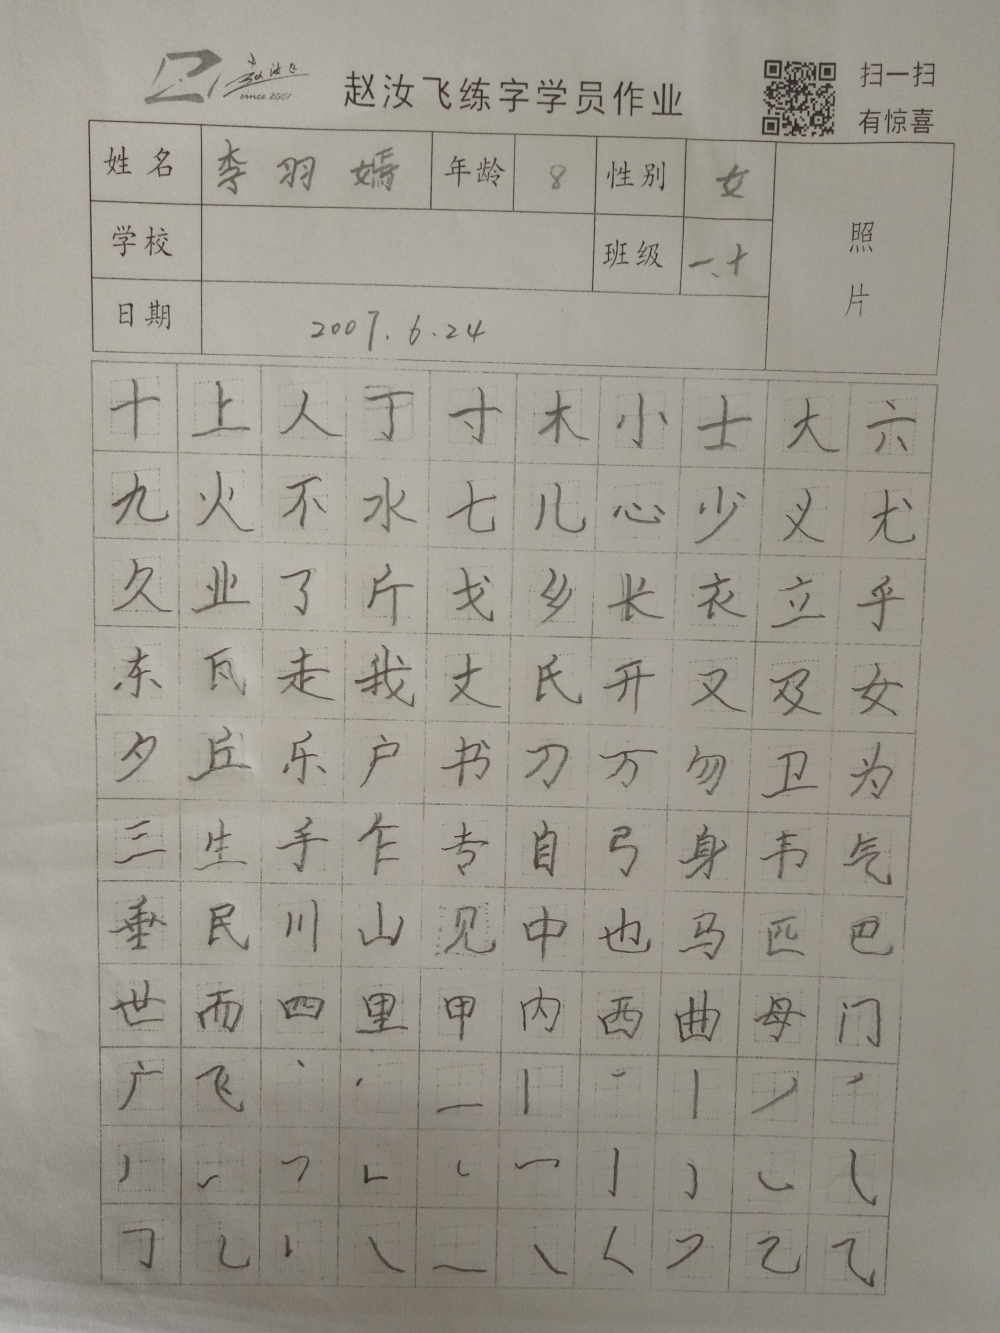 赵汝飞 since 2007
赵汝飞练字学员作业
扫一扫
有惊喜
姓名 李羽嫣 年龄 8 性别 女
照片
学校 班级 一、十
日期 2007.6.24
十上人丁寸木小士大六
九火不水七儿心少义尤
久业了斤戈乡长衣立乎
东瓦走我丈氏开又及女
夕丘乐户书刀万勿卫为
三生手乍专自弓身韦气
垂民川山见中也马匹巴
世而四里甲内西曲母门
广飞